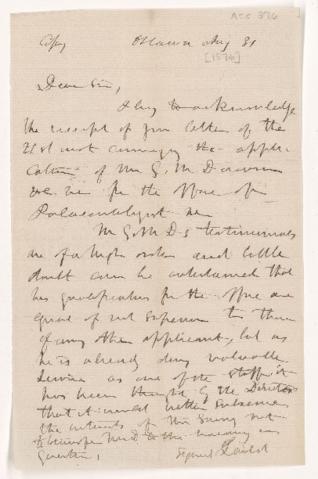 Acc 376
Copy Ottawa Aug 31
[1876]
Dear Sir,
I beg to acknowledge
the receipt of your letter of the
21st inst conveying the appli
cation of Mr G. M. Dawson
for the office of
Palaeontologist
Mr G. M. D's testimonials
are of a high order and little
doubt can be entertained that
his qualifications for the office are
equal if not superior to those
of any other applicant, but as
he is already doing valuable
service as one of the staff it
has been thought by the Director
that it would better subserve
the interests of the Survey not
to transfer Mr D to the vacancy in
question,
Signed